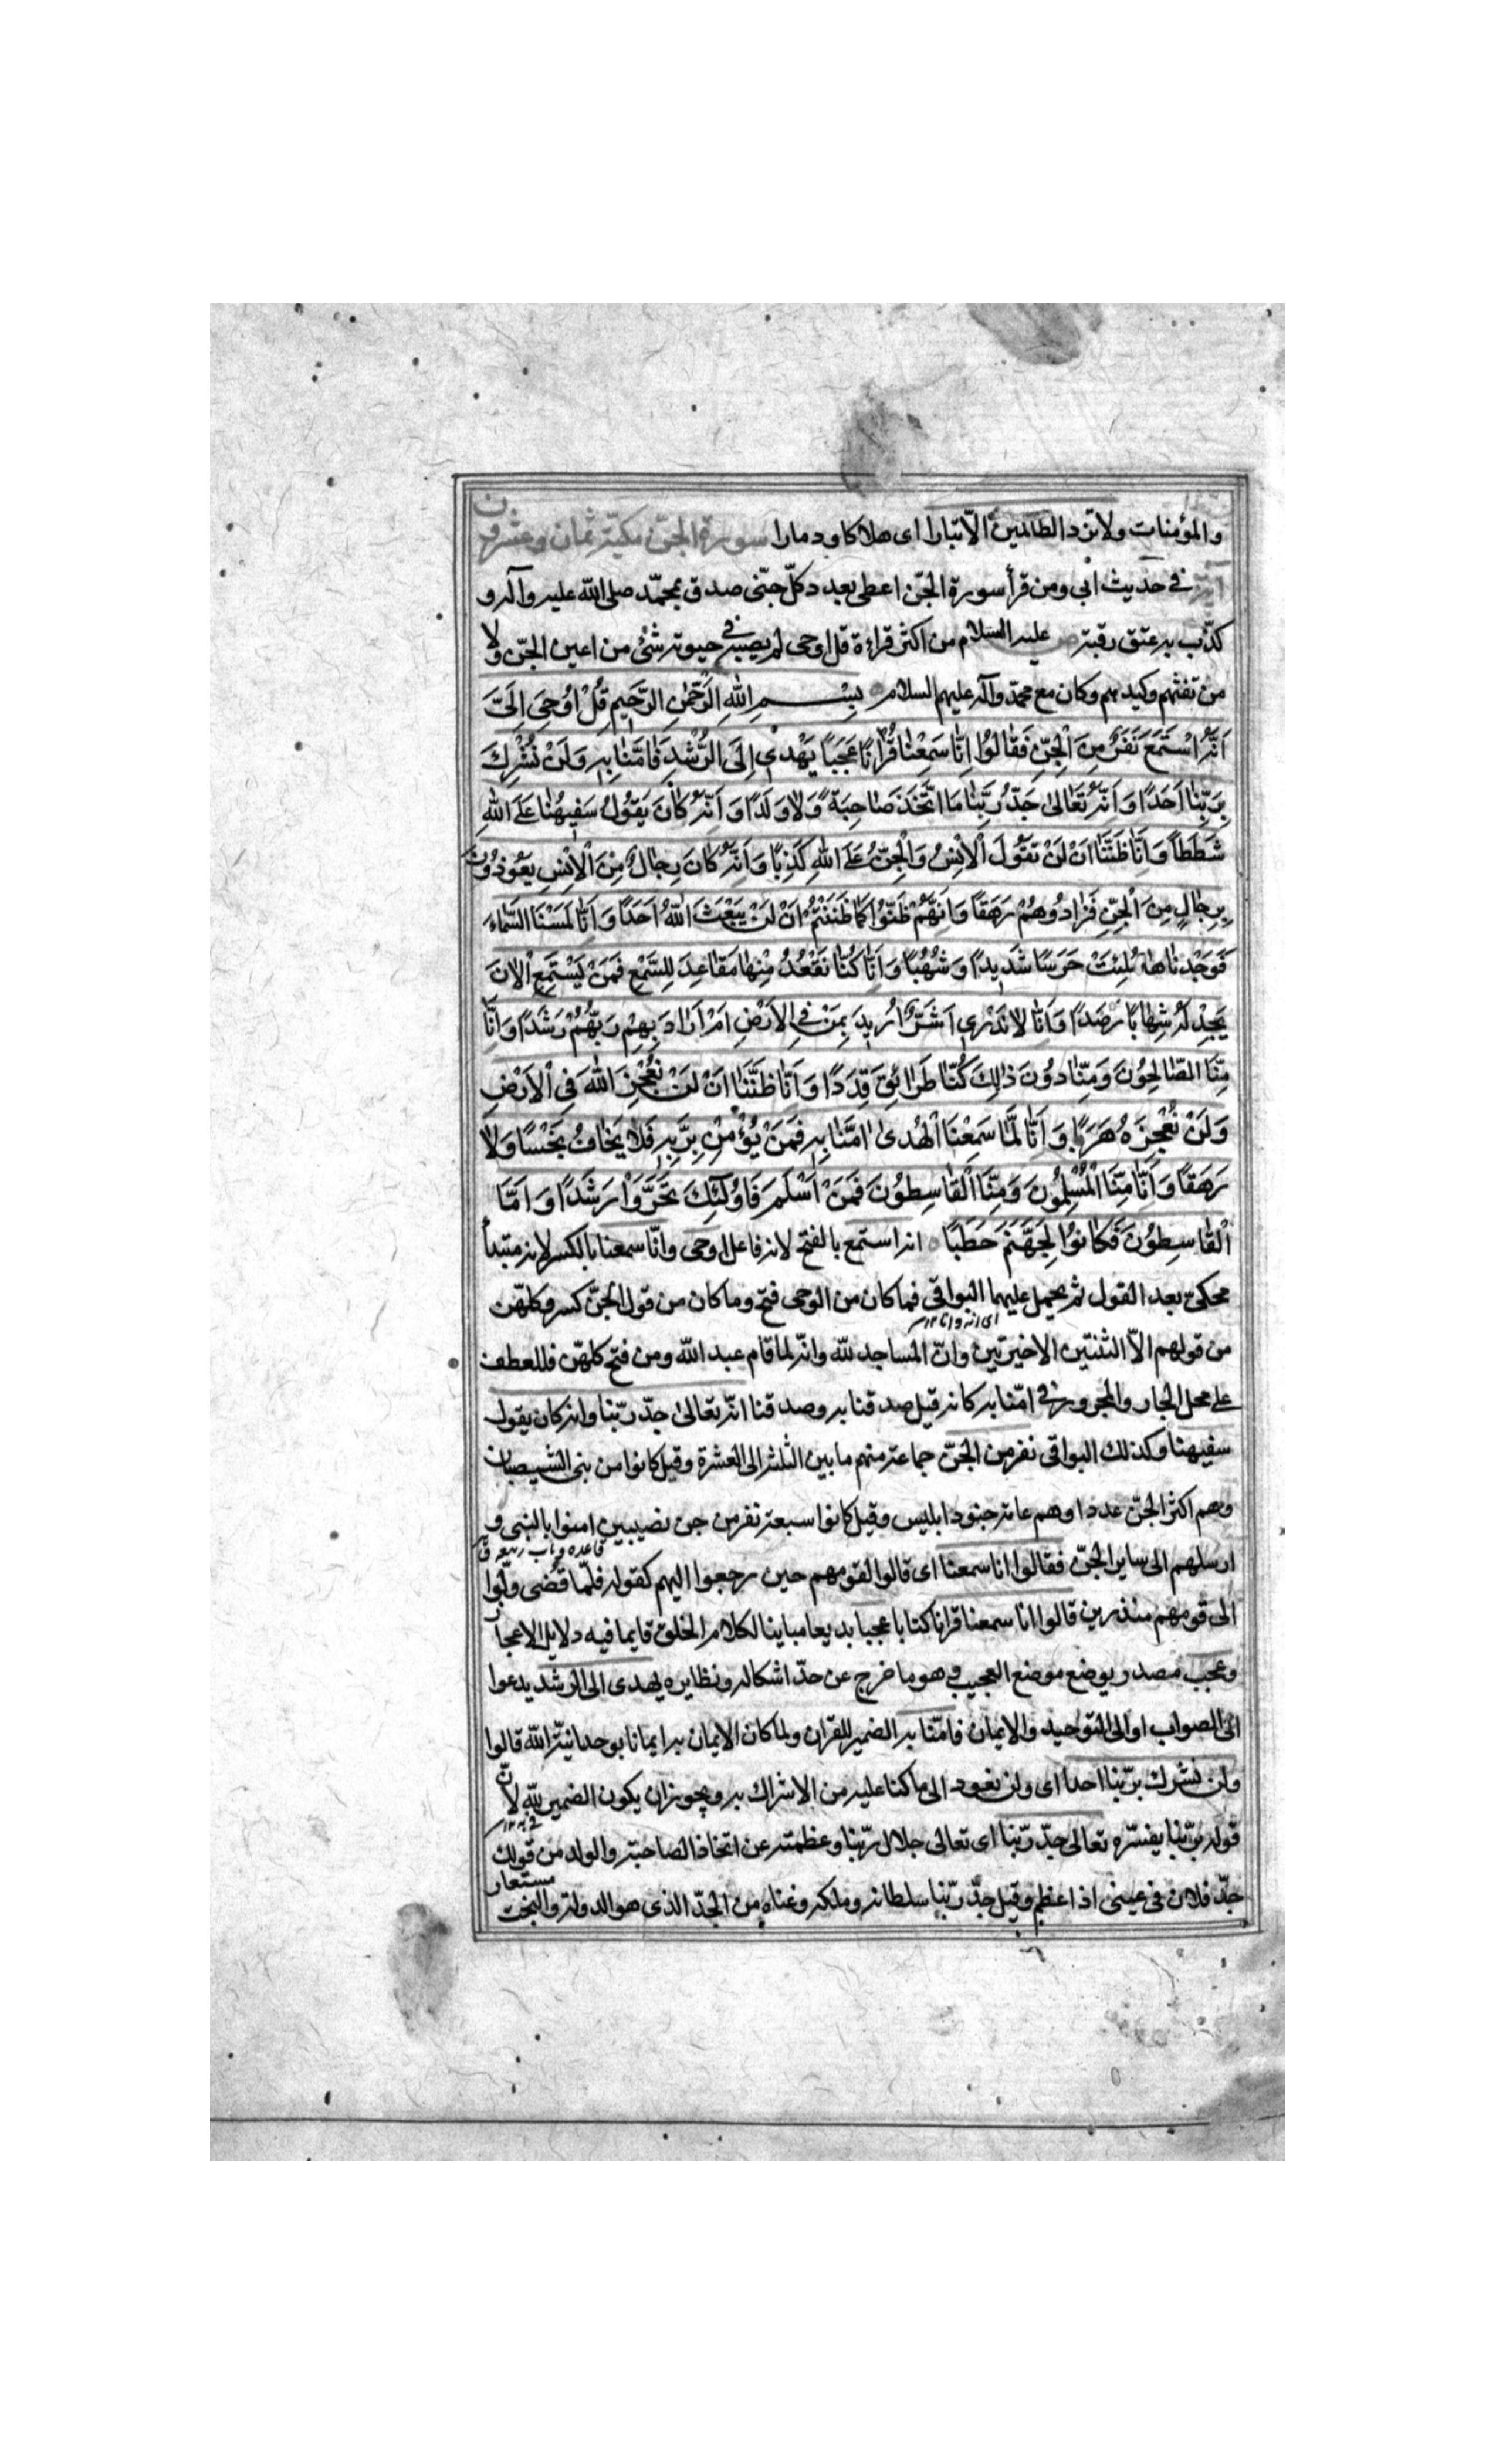 والمؤمنات ولا تزد الظالمين الّا تبارا اى هلاكا ودمارا سورة الجنّ مكيّة ثمان وعشرون
آية فى حديث ابى ومن قرأ سورة الجنّ اعطى بعدد كلّ جنّى صدق بمحمّد صلى الله عليه وآله و
كذّب به عتق رقبة ص عليه السلام من اكثر قراءة قل اوحى لم يصبه فى حيوته شئ من اعين الجنّ ولا
من نفثهم وكيدهم وكان مع محمّد وآله عليهم السلام بِسْمِ اللهِ الرَّحْمٰنِ الرَّحِيمِ قُلْ اُوحِىَ اِلَىَّ
اَنَّهُ اسْتَمَعَ نَفَرٌ مِنَ الْجِنِّ فَقَالُوا اِنَّا سَمِعْنَا قُرْاٰنًا عَجَبًا يَهْدِى اِلَى الرُّشْدِ فَاٰمَنَّا بِهِ وَلَنْ نُشْرِكَ
بِرَبِّنَا اَحَدًا وَاَنَّهُ تَعَالىٰ جَدُّ رَبِّنَا مَا اتَّخَذَ صَاحِبَةً وَلَا وَلَدًا وَاَنَّهُ كَانَ يَقُولُ سَفِيهُنَا عَلَى اللهِ
شَطَطًا وَاَنَّا ظَنَنَّا اَنْ لَنْ تَقُولَ الْاِنْسُ وَالْجِنُّ عَلَى اللهِ كَذِبًا وَاَنَّهُ كَانَ رِجَالٌ مِنَ الْاِنْسِ يَعُوذُونَ
بِرِجَالٍ مِنَ الْجِنِّ فَزَادُوهُمْ رَهَقًا وَاَنَّهُمْ ظَنُّوا كَمَا ظَنَنْتُمْ اَنْ لَنْ يَبْعَثَ اللهُ اَحَدًا وَاَنَّا لَمَسْنَا السَّمَاءَ
فَوَجَدْنَاهَا مُلِئَتْ حَرَسًا شَدِيدًا وَشُهُبًا وَاَنَّا كُنَّا نَقْعُدُ مِنْهَا مَقَاعِدَ لِلسَّمْعِ فَمَنْ يَسْتَمِعِ الْاٰنَ
يَجِدْ لَهُ شِهَابًا رَصَدًا وَاَنَّا لَا نَدْرِى اَشَرٌّ اُرِيدَ بِمَنْ فِى الْاَرْضِ اَمْ اَرَادَ بِهِمْ رَبُّهُمْ رَشَدًا وَاَنَّا
مِنَّا الصَّالِحُونَ وَمِنَّا دُونَ ذٰلِكَ كُنَّا طَرَائِقَ قِدَدًا وَاَنَّا ظَنَنَّا اَنْ لَنْ نُعْجِزَ اللهَ فِى الْاَرْضِ
وَلَنْ نُعْجِزَهُ هَرَبًا وَاَنَّا لَمَّا سَمِعْنَا الْهُدىٰ اٰمَنَّا بِهِ فَمَنْ يُؤْمِنْ بِرَبِّهِ فَلَا يَخَافُ بَخْسًا وَلَا
رَهَقًا وَاَنَّا مِنَّا الْمُسْلِمُونَ وَمِنَّا الْقَاسِطُونَ فَمَنْ اَسْلَمَ فَاُولٰئِكَ تَحَرَّوْا رَشَدًا وَاَمَّا
الْقَاسِطُونَ فَكَانُوا لِجَهَنَّمَ حَطَبًا انه استمع بالفتح لانه فاعل اوحى وانّا سمعنا بالكسر لانه مبتدأ
محكىّ بعد القول ثم يحمل عليهما البواقى فما كان من الوحى فتح وما كان من قول الجنّ كسر وكلهّن
من قولهم الاّ الثنتين الاخيرتين وانّ المساجد لله وانّه لما قام عبد الله ومن فتح كلهنّ فللعطف
على محل الجار والمجرور فى امنّا به كانه قيل صدقنا به وصدقنا انّه تعالىٰ جدّ ربّنا وانه كان يقول
سفيهنا وكذلك البواقى نفر من الجنّ جماعة منهم ما بين الثلثة الى العشرة وقيل كانوا من بنى الشيصبان
وهم اكثر الجنّ عددا وهم عامة جنود ابليس وقيل كانوا سبعة نفر من جن نصيبين امنوا بالنبى و
ارسلهم الى ساير الجنّ فقالوا انا سمعنا اى قالوا لقومهم حين رجعوا اليهم كقوله فلمّا قضى ولّوا
الى قومهم منذرين قالوا انا سمعنا قرانا كتابا عجبا بديعا مباينا لكلام الخلق قايما فيه دلايل الاعجاز
وعجب مصدر يوضع موضع العجيب وهو ما خرج عن حدّ اشكاله ونظايره يهدى الى الرشد يدعوا
الى الصواب او الى التوحيد والايمان فامنّا به الضمير للقران ولما كان الايمان به ايمانا بوحدانيّة الله قالوا
ولن نشرك بربّنا احدا اى ولن نعود الى ما كنا عليه من الاشراك به ويجوز ان يكون الضمير لله لانّ
قوله بربّنا يفسّره تعالى جدّ ربّنا اى تعالى جلال ربّنا وعظمته عن اتخاذ الصاحبة والولد من قولك
جدّ فلان فى عينى اذا عظم وقيل جدّ ربّنا سلطانه وملكه وغناه من الجدّ الذى هو الدولة والبخت
مستعار